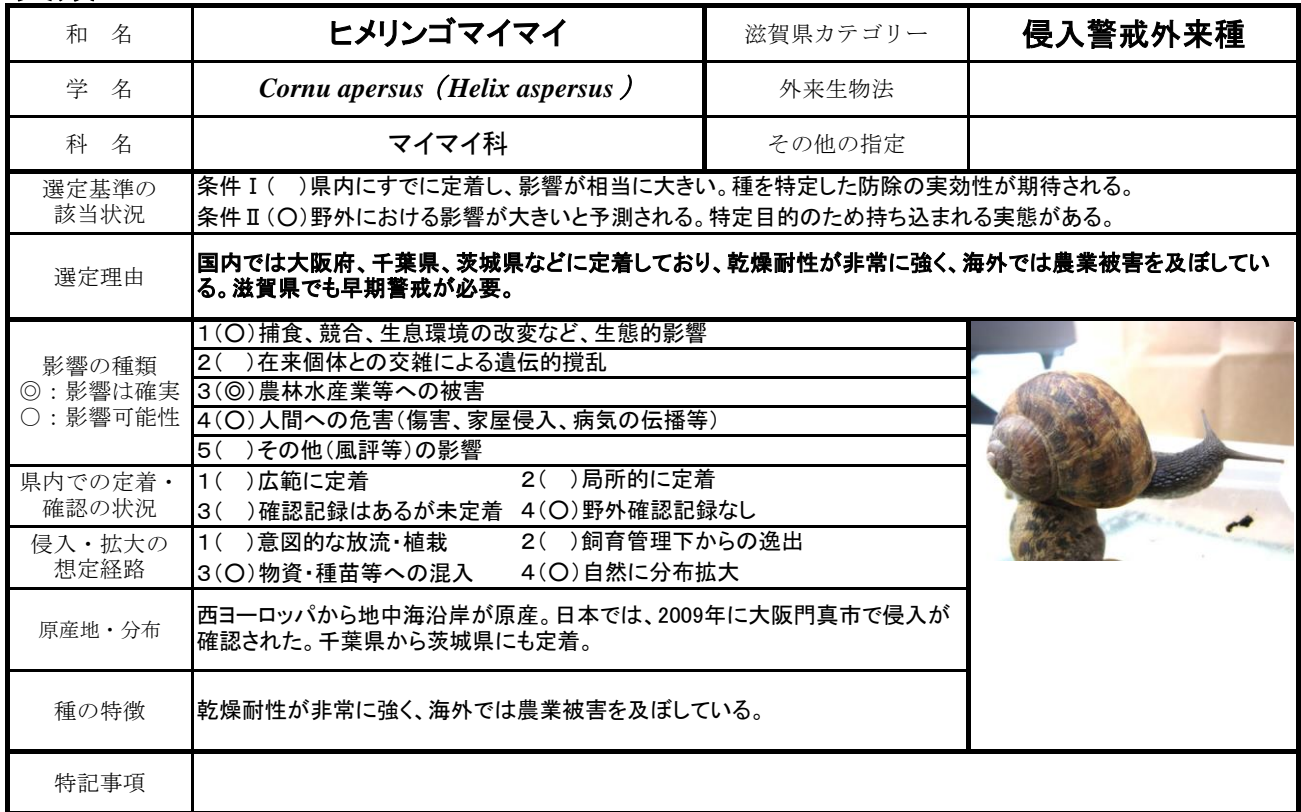 和　名　ヒメリンゴマイマイ　滋賀県カテゴリー　侵入警戒外来種
学　名　Cornu apersus（Helix aspersus）　外来生物法
科　名　マイマイ科　その他の指定
選定基準の
該当状況
条件Ⅰ（　）県内にすでに定着し、影響が相当に大きい。種を特定した防除の実効性が期待される。
条件Ⅱ（○）野外における影響が大きいと予測される。特定目的のため持ち込まれる実態がある。
選定理由
国内では大阪府、千葉県、茨城県などに定着しており、乾燥耐性が非常に強く、海外では農業被害を及ぼしてい
る。滋賀県でも早期警戒が必要。
影響の種類
◎：影響は確実
○：影響可能性
1（○）捕食、競合、生息環境の改変など、生態的影響
2（　）在来個体との交雑による遺伝的撹乱
3（◎）農林水産業等への被害
4（○）人間への危害（傷害、家屋侵入、病気の伝播等）
5（　）その他（風評等）の影響
県内での定着・
確認の状況
1（　）広範に定着　2（　）局所的に定着
3（　）確認記録はあるが未定着　4（○）野外確認記録なし
侵入・拡大の
想定経路
1（　）意図的な放流・植栽　2（　）飼育管理下からの逸出
3（○）物資・種苗等への混入　4（○）自然に分布拡大
原産地・分布
西ヨーロッパから地中海沿岸が原産。日本では、2009年に大阪門真市で侵入が
確認された。千葉県から茨城県にも定着。
種の特徴
乾燥耐性が非常に強く、海外では農業被害を及ぼしている。
特記事項